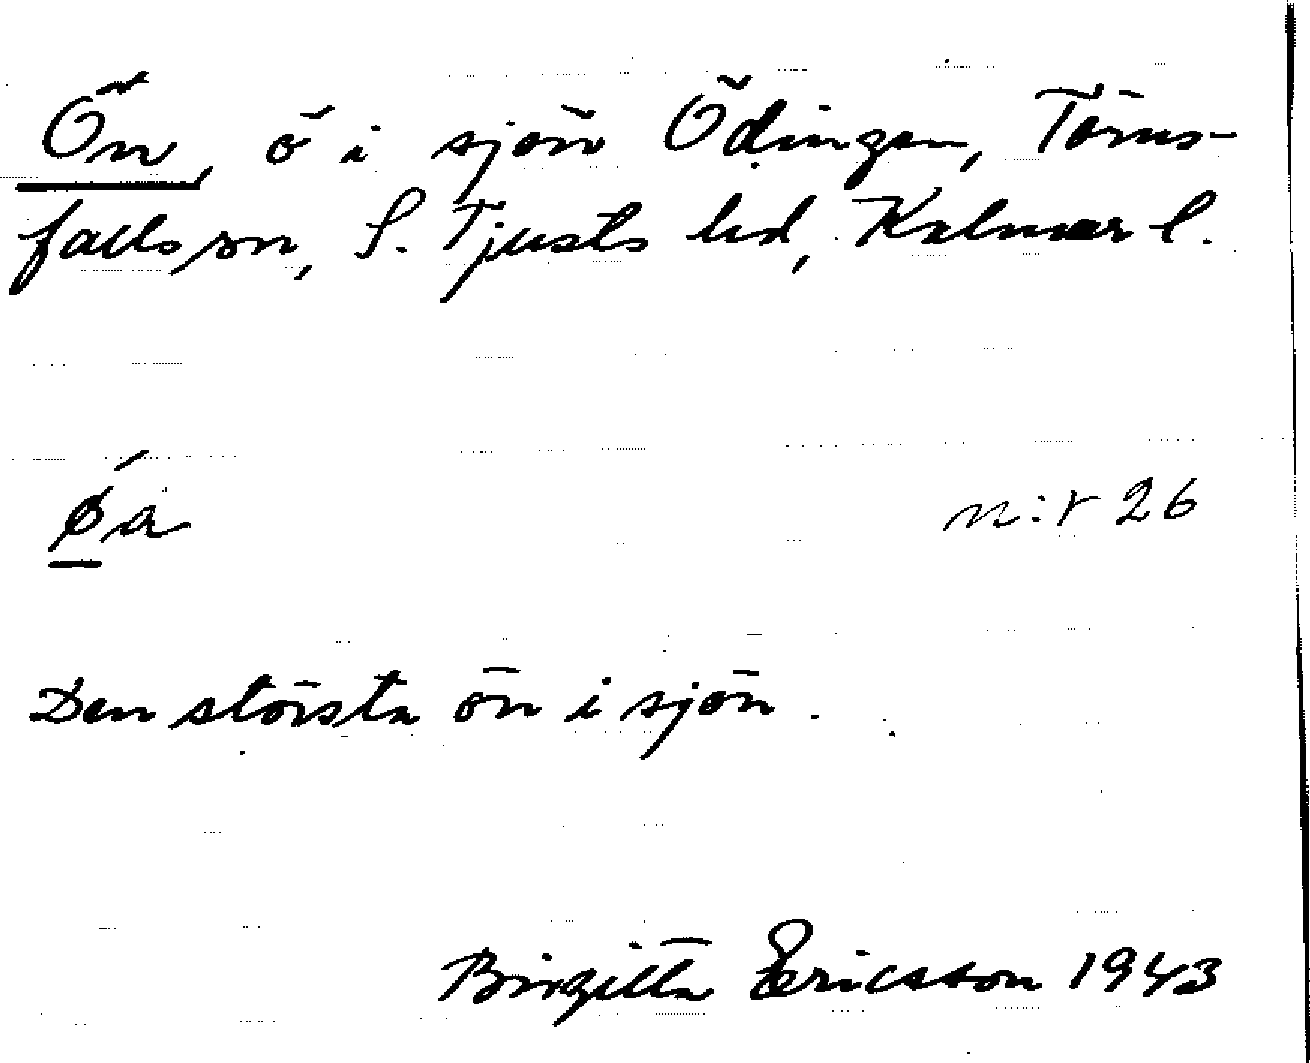 Ön, ö i sjön Ödingen, Törns-
falls sn, S. Tjusts hd, Kalmar l.
ǿa n:r 26
Den största ön i sjön.
Birgitta Ericsson 1943